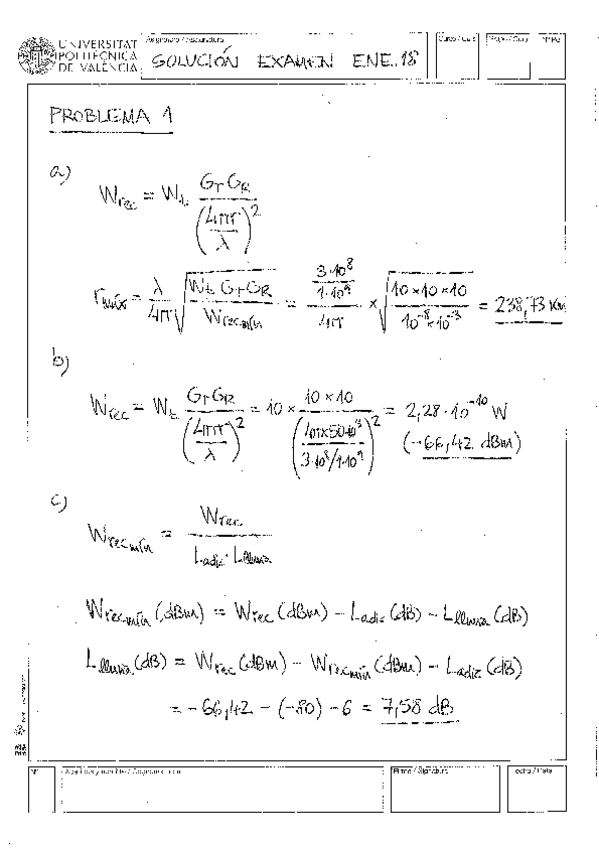 UNIVERSITAT
POLITÈCNICA
DE VALÈNCIA
Asignatura / Assignatura
SOLUCIÓN EXAMEN ENE. 18
PROBLEMA 1
a)
W_rec = W_t G_T G_R / (4πr/λ)^2
r_máx = λ/4π √(W_t G_T G_R / W_rec mín) = (3·10^8 / 1·10^9) / 4π × √(10×10×10 / 10^-8×10^-3) = 238,73 Km
b)
W_rec = W_t G_T G_R / (4πr/λ)^2 = 10 × 10×10 / (4π×50·10^3 / 3·10^8/1·10^9)^2 = 2,28·10^-10 W
(-66,42 dBm)
c)
W_rec mín = W_rec / L_adic · L_lluvia
W_rec mín (dBm) = W_rec (dBm) - L_adic (dB) - L_lluvia (dB)
L_lluvia (dB) = W_rec (dBm) - W_rec mín (dBm) - L_adic (dB)
= -66,42 - (-80) - 6 = 7,58 dB
Firma / Signatura